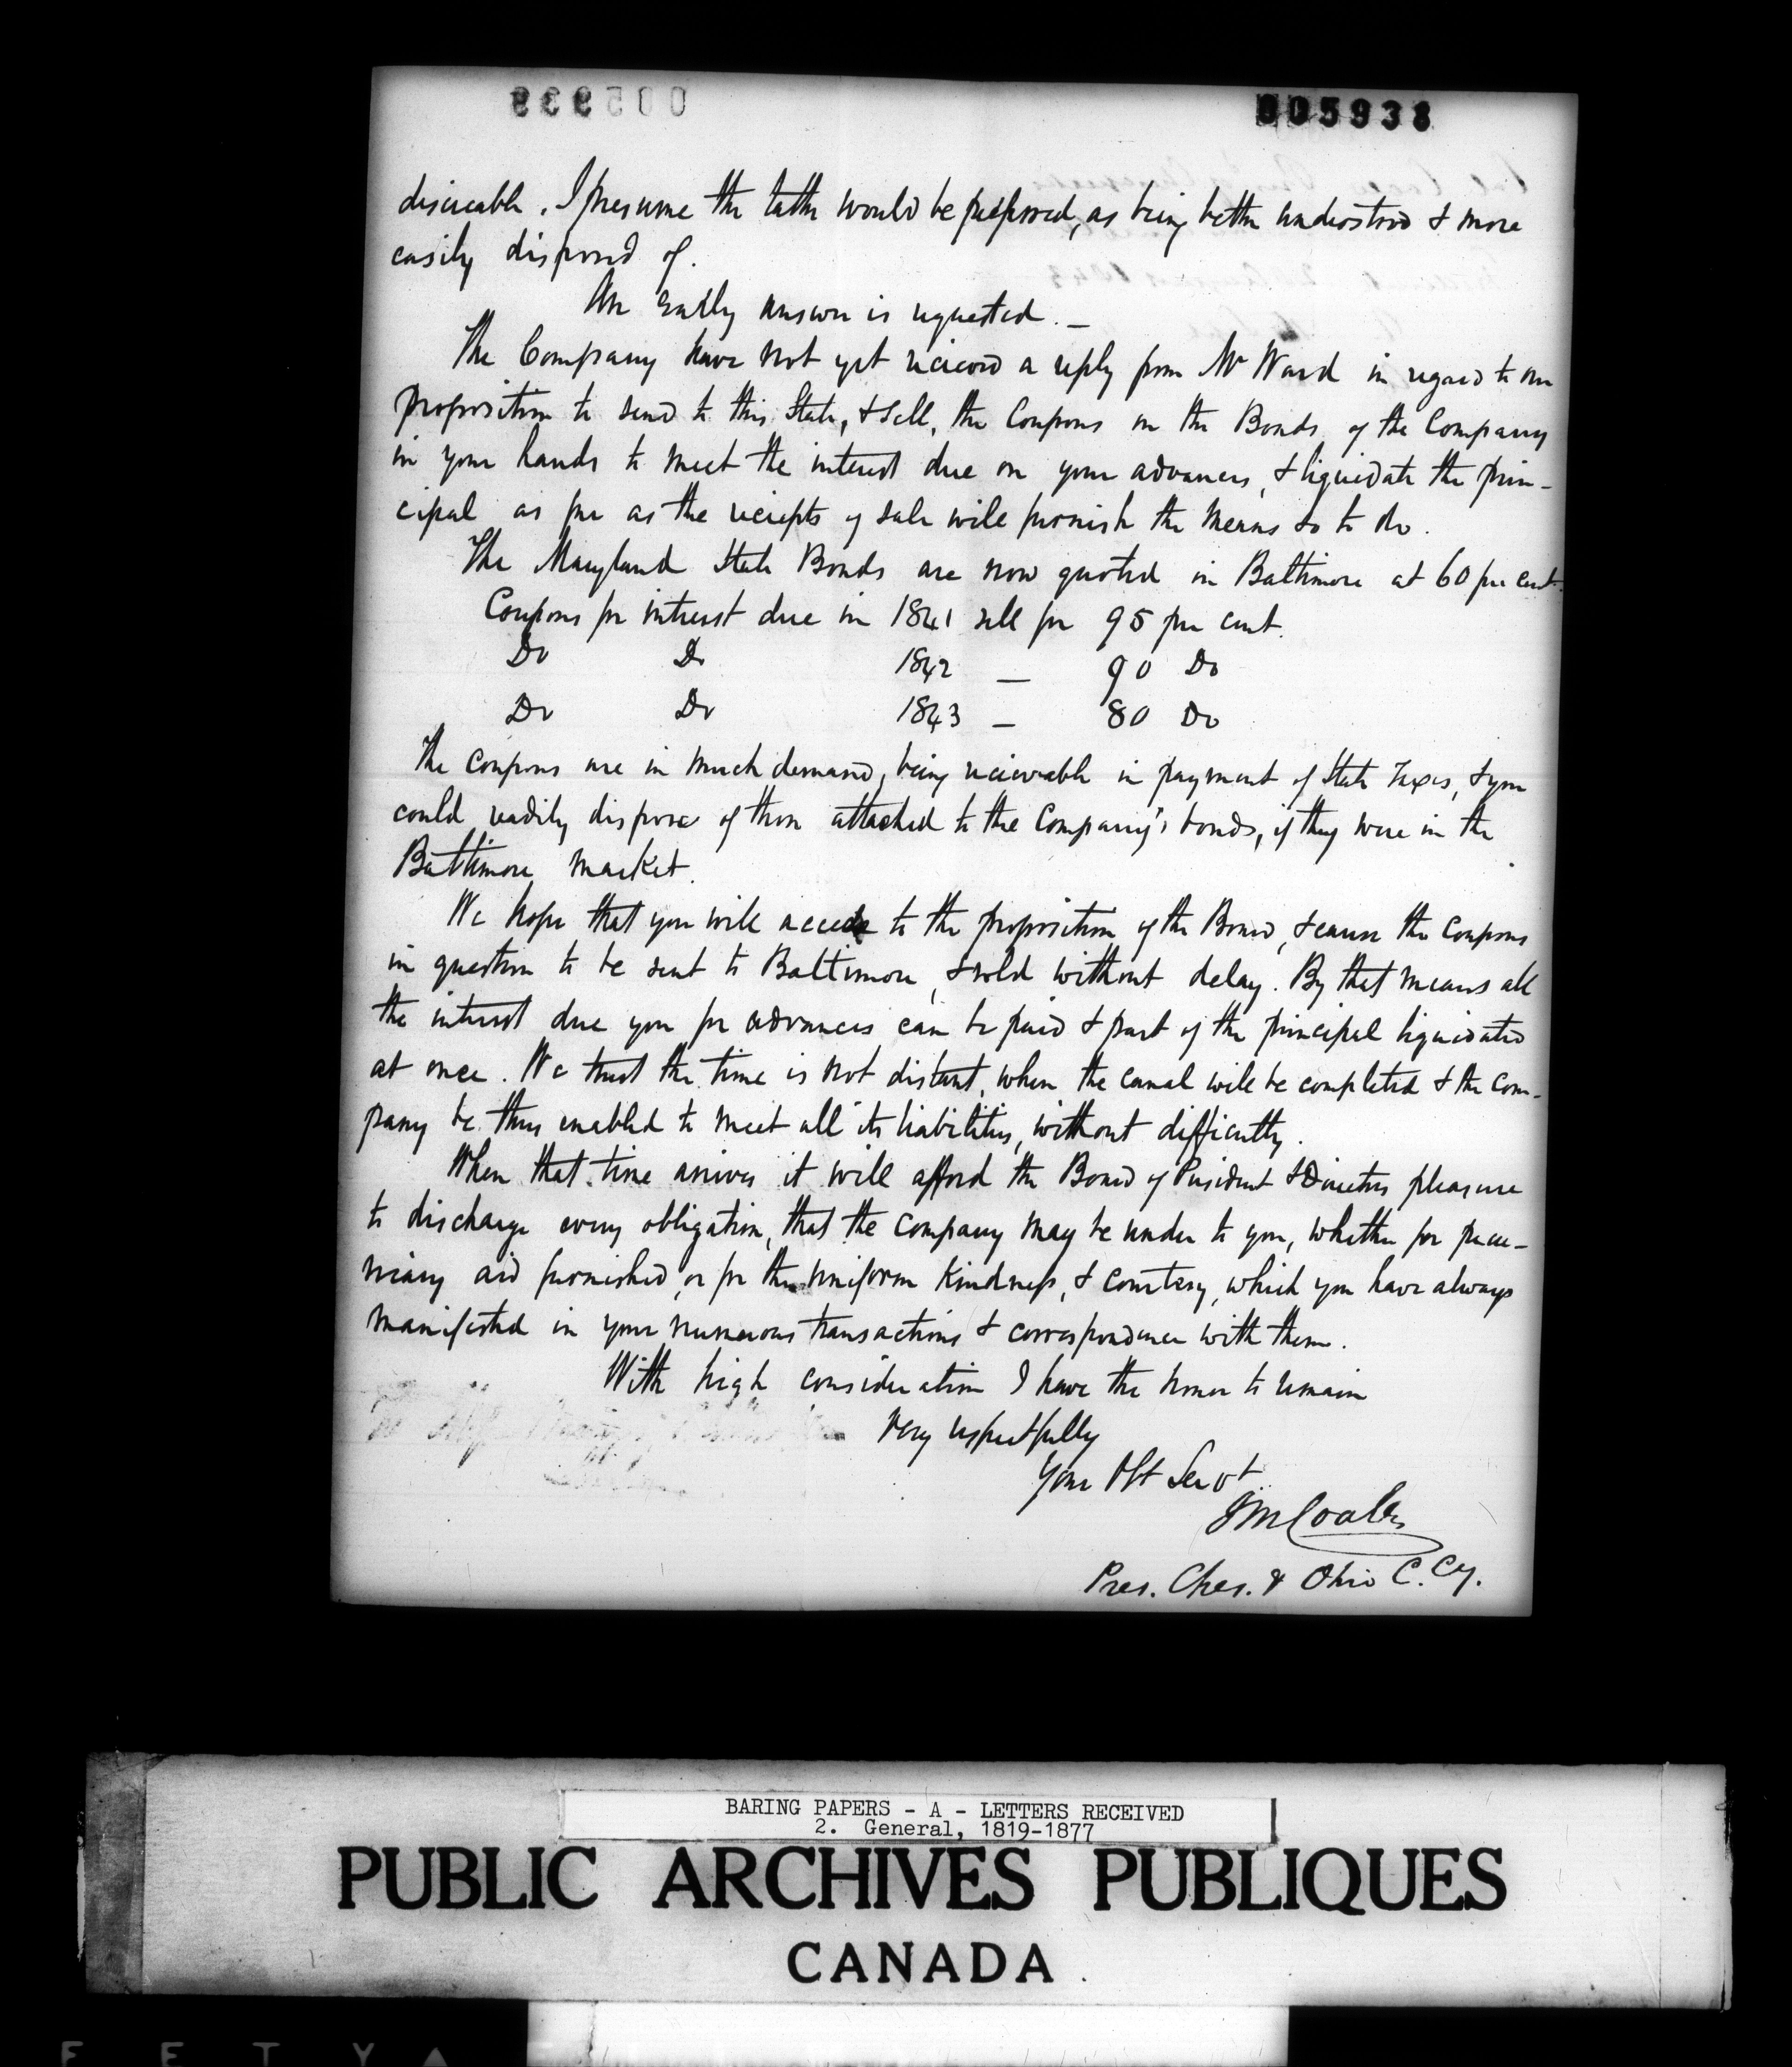 005938
desireable. I presume the latter would be preferred, as being better understood & more
easily disposed of.
An early answer is requested. —
The Company have not yet received a reply from Mr Ward in regard to our
proposition to send to this State, & sell, the Coupons on the Bonds of the Company
in your hands to meet the interest due on your advances, & liquidate the prin-
cipal as far as the receipts of sale will furnish the means so to do.
The Maryland State Bonds are now quoted in Baltimore at 60 per cent.
Coupons for interest due in 1841 sell for 95 per cent.
Do Do 1842 — 90 Do
Do Do 1843 — 80 Do
The coupons are in much demand, being recievable in payment of State Taxes, & you
could readily dispose of those attached to the Company's bonds, if they were in the
Baltimore market.
We hope that you will accede to the proposition of the Board, & cause the coupons
in question to be sent to Baltimore, & sold without delay. By that means all
the interest due you for advances can be paid & part of the principal liquidated
at once. We trust the time is not distant, when the canal will be completed & the com-
pany be thus enabled to meet all its liabilities, without difficulty.
When that time arrives it will afford the Board of President & Directors pleasure
to discharge every obligation, that the company may be under to you, whether for pecu-
niary aid furnished, or for the uniform kindness, & courtesy, which you have always
manifested in your numerous transactions & correspondence with them.
With high consideration I have the honor to remain
very respectfully
Your Obt Servt
J M Coale
Pres. Ches. & Ohio C. Cy.
BARING PAPERS - A - LETTERS RECEIVED
2. General, 1819-1877
PUBLIC ARCHIVES PUBLIQUES
CANADA